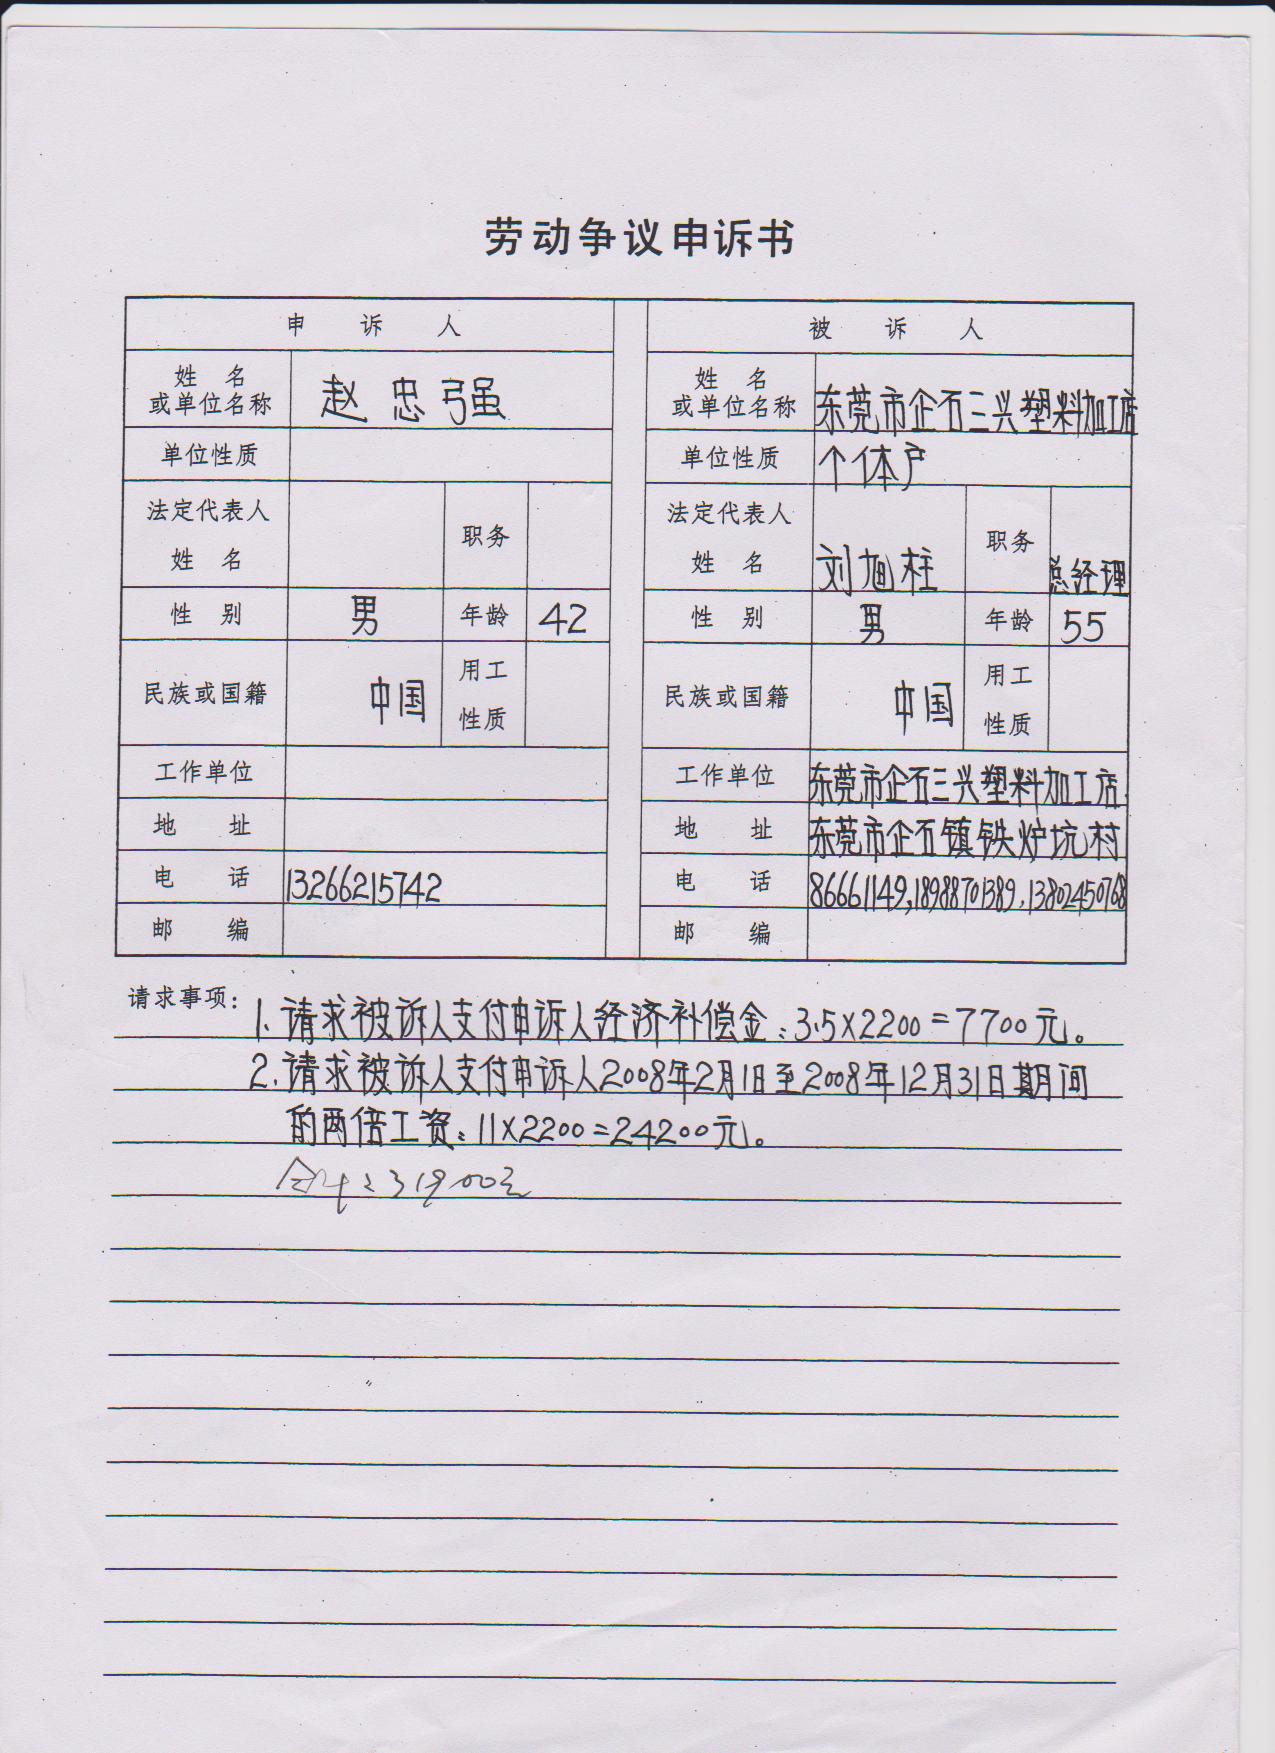 劳动争议申诉书
申诉人 被诉人
姓名 或单位名称 赵忠强 姓名 或单位名称 东莞市企石三兴塑料加工店
单位性质 单位性质 个体户
法定代表人 姓名 职务 法定代表人 姓名 刘旭柱 职务 总经理
性别 男 年龄 42 性别 男 年龄 55
民族或国籍 中国 用工性质 民族或国籍 中国 用工性质
工作单位 工作单位 东莞市企石三兴塑料加工店.
地址 地址 东莞市企石镇铁炉坑村
电话 13266215742 电话 86661149,18988701389,13802450768
邮编 邮编
请求事项: 1.请求被诉人支付申诉人经济补偿金:3.5×2200=7700元。
2.请求被诉人支付申诉人2008年2月1日至2008年12月31日期间
的两倍工资:11×2200=24200元。
合计:31900元